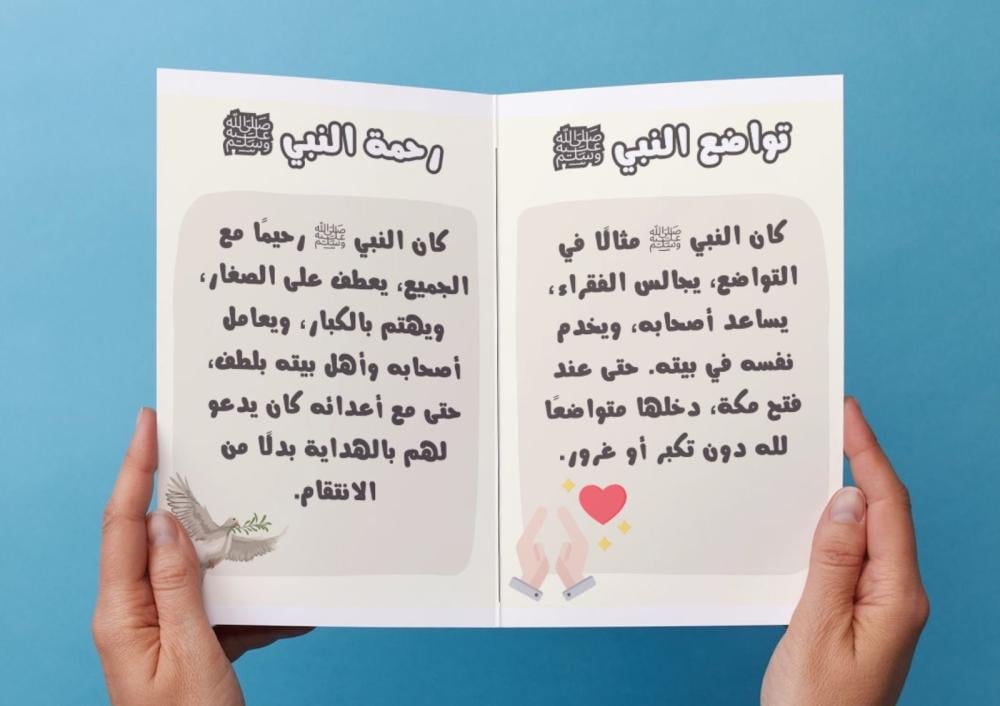 تواضع النبي ﷺ
كان النبي ﷺ مثالًا في
التواضع، يجالس الفقراء،
يساعد أصحابه، ويخدم
نفسه في بيته. حتى عند
فتح مكة، دخلها متواضعًا
لله دون تكبر أو غرور.
رحمة النبي ﷺ
كان النبي ﷺ رحيمًا مع
الجميع، يعطف على الصغار،
ويهتم بالكبار، ويعامل
أصحابه وأهل بيته بلطف،
حتى مع أعدائه كان يدعو
لهم بالهداية بدلًا من
الانتقام.